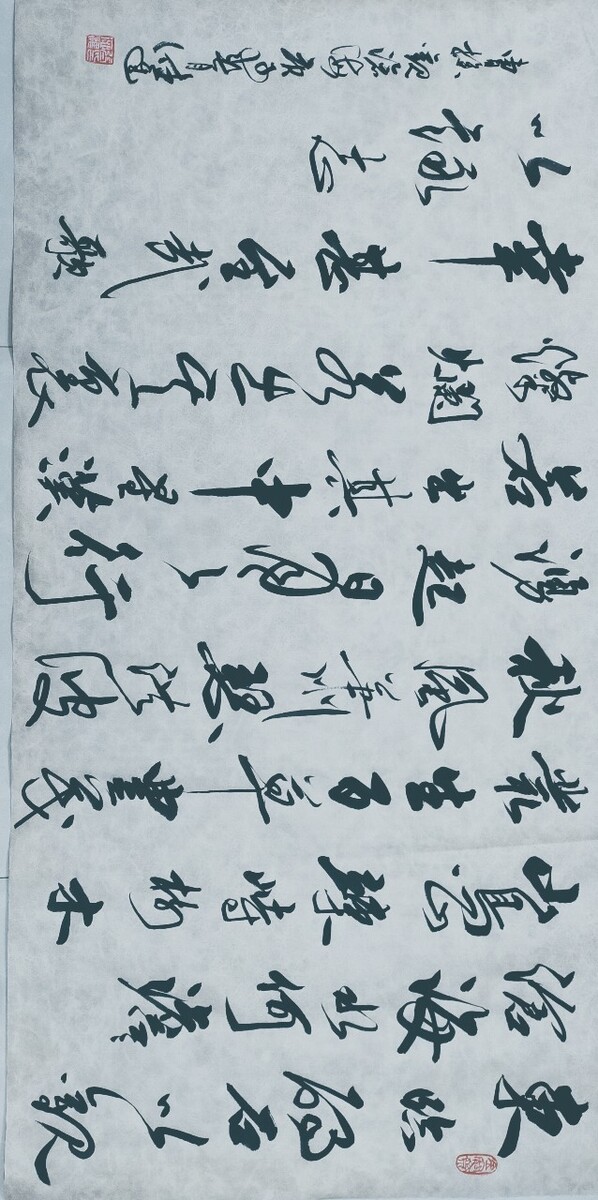 東臨碣石以觀
滄海水何澹々
山島竦峙樹木
叢生百草豐茂
秋風蕭瑟洪波
湧起日月之行
若出其中星漢
燦爛若出其裏
幸甚至哉歌
以詠志
曹操觀滄海